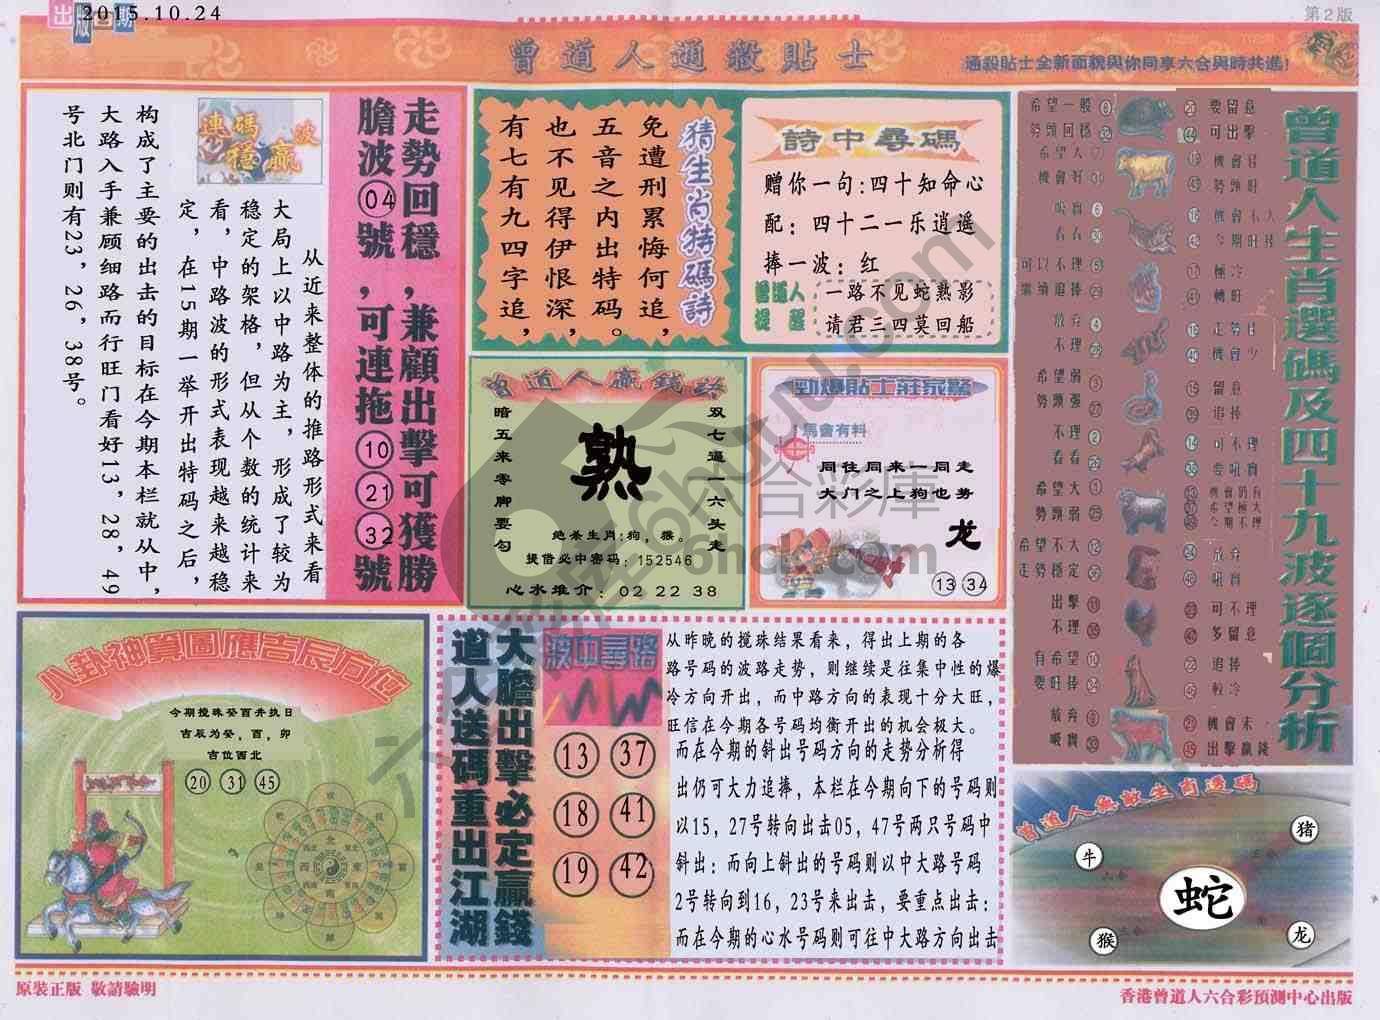 出版日期
2015.10.24
第2版
曾道人通殺貼士
通殺貼士全新面貌與你同享六合與時共進!
走勢回穩,兼顧出擊可獲勝
膽波04號,可連拖10 21 32號
連碼波
穩贏
从近来整体的推路形式来看
大局上以中路为主,形成了较为
稳定的架格,但从个数的统计来
看,中路波的形式表现越来越稳
定,在15期一举开出特码之后,
构成了主要的出击的目标在今期本栏就从中,
大路入手兼顾细路而行旺门看好13,28,49
号北门则有23,26,38号。
猜生肖特碼詩
免遭刑累悔何追,
五音之内出特码。
也不见得伊恨深,
有七有九四字追,
詩中尋碼
赠你一句:四十知命心
配:四十二一乐逍遥
捧一波:红
曾道人提醒
一路不见蛇熟影
请君三四莫回船
曾道人贏錢路
双七逼一六头走
熟
暗五来零脚要勾
绝杀生肖:狗,猴。
提借必中密码:152546
心水推介:02 22 38
勁爆貼士莊家驚
馬會有料
同往同来一同走
大门之上狗也势
龙
13 34
曾道人生肖選碼及四十九波逐個分析
希望一般
勢頭回穩
要留意
可出擊
希望大
機會好
機會好
勢頭旺
吸實
看看
機會不大
今期旺捧
可以不理
繼續追捧
極冷
轉旺
放弃
不理
走勢佳
機會少
希望弱
勢頭强
留意
追捧
不理
看看
可不理
要吼實
希望大
勢頭弱
希望極大
今期不理
希望不大
走勢穩定
放弃
吼實
出擊
不理
可不理
多留意
有希望
要旺捧
追捧
較冷
放弃
吸實
機會未
出擊贏錢
八卦神算圖應吉辰方位
今期搅珠癸酉并执日
吉辰为癸,酉,卯
吉位西北
20 31 45
大膽出擊必定贏錢
道人送碼重出江湖
波中尋路
13 37
18 41
19 42
从昨晚的搅珠结果看来,得出上期的各
路号码的波路走势,则继续是往集中性的爆
冷方向开出,而中路方向的表现十分大旺,
旺信在今期各号码均衡开出的机会极大。
而在今期的斜出号码方向的走势分析得
出仍可大力追捧,本栏在今期向下的号码则
以15,27号转向出击05,47号两只号码中
斜出:而向上斜出的号码则以中大路号码
2号转向到16,23号来出击,要重点出击:
而在今期的心水号码则可往中大路方向出击
曾道人無敵生肖透碼
猪
牛
蛇
猴
龙
原裝正版 敬請驗明
香港曾道人六合彩預測中心出版